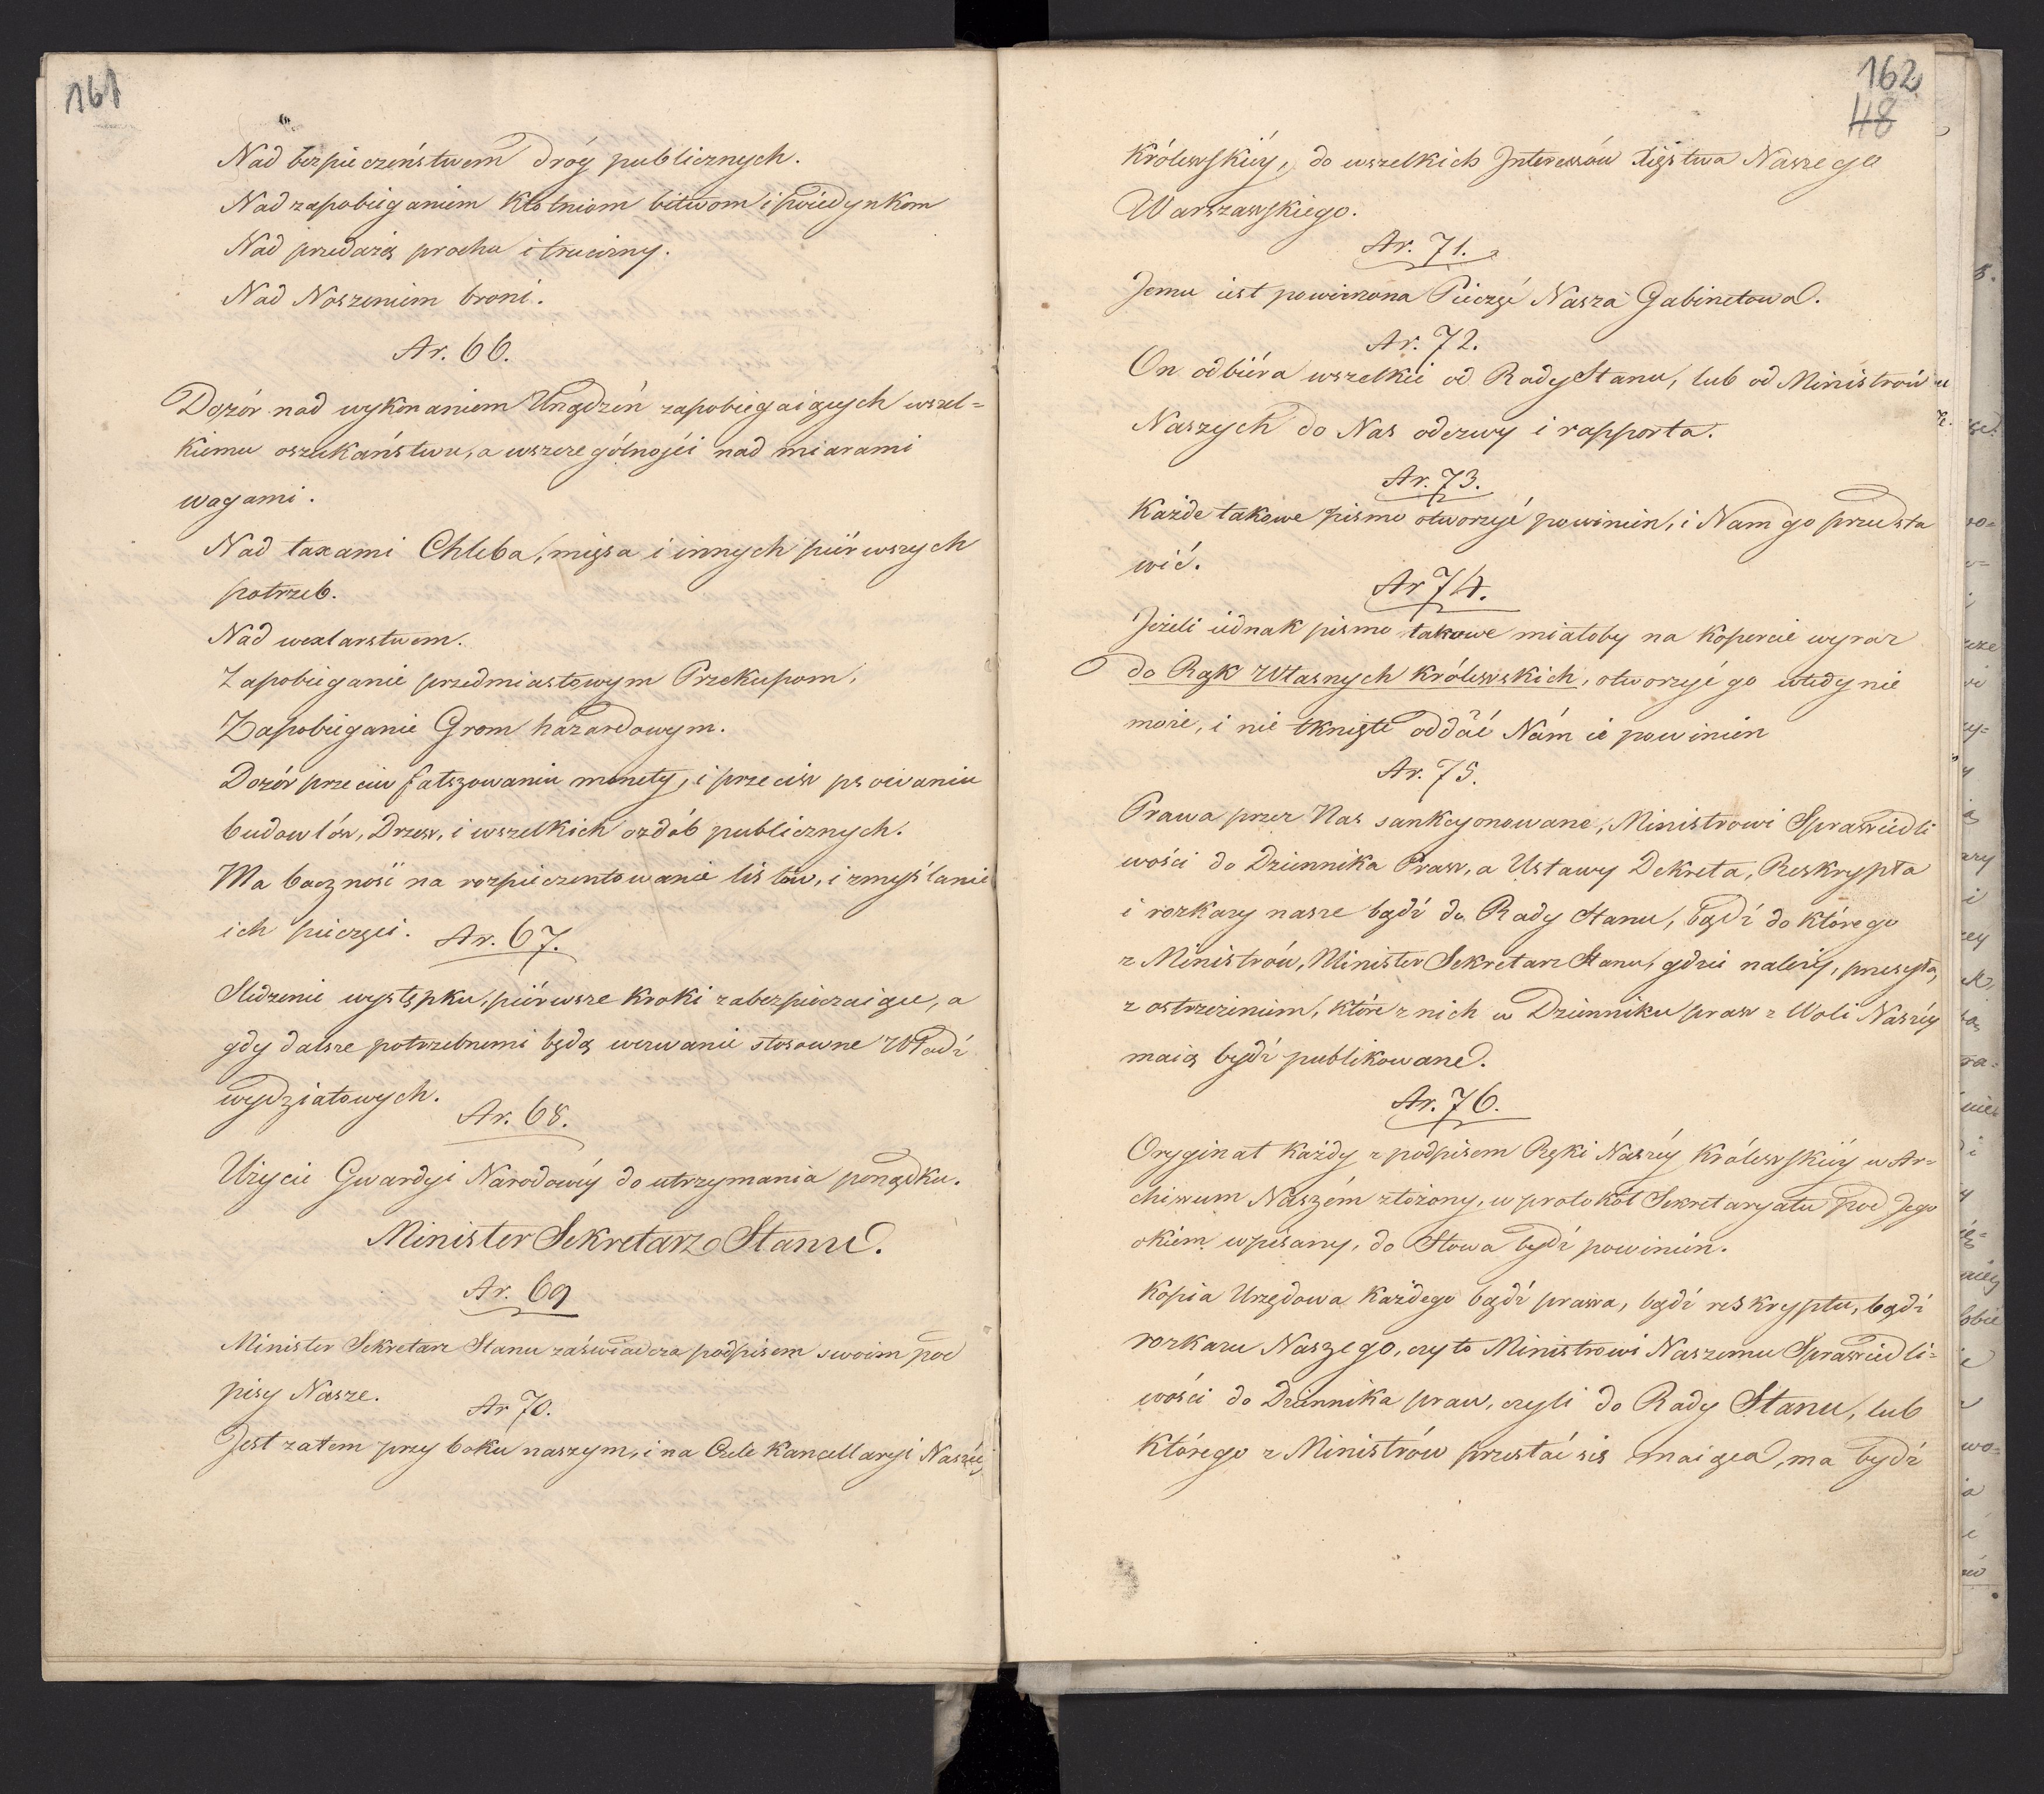 161
Nad bezpieczeństwem dróg publicznych.
Nad zapobieganiem Kłótniom bitwom i poiedynkom
Nad przedażą prochu i trucizny.
Nad Noszeniem broni.
Ar. 66.
Dozór nad wykonaniem Urządzeń zapobiegaiących wszel=
kiemu oszukaństwu, a wszczególnosci nad miarami
wagami.
Nad taxami Chleba, mięsa i innych piérwszych
potrzeb.
Nad wexlarstwem.
Zapobieganie przedmiastowym Przekupom,
Zapobieganie Grom hazardowym.
Dozór przeciw fałszowaniu monety, i przeciw psowaniu
budowlów, Drzew, i wszelkich ozdób publicznych.
Ma baczność na rozpieczentowanie listów, i zmyślanie
ich pieczęci.
Ar. 67.
Sledzenie występku, piérwsze Kroki zabezpieczaiące, a
gdy dalsze potrzebnemi będą wezwanie stosowne Władź
wydziałowych.
Ar. 68.
Użycie Gwardyi Narodowéy do utrzymania porządku.
Minister Sekretarz Stanu.
Ar. 69
Minister Sekretarz Stanu zaświadcza podpisem swoim pod
pisy Nasze.
Ar 70.
Jest zatem przy boku naszym, i na Czele Kancellaryi Naszéy
162
48
Królewskiéy, do wszelkich Interessów Xięstwa Naszego
Warszawskiego.
Ar. 71.
Jemu iest powierzona Pieczęć Nasza Gabinetowa.
Ar. 72.
On odbiéra wszelkie od Rady Stanu, lub od Ministrów
Naszych do Nas odezwy i rapporta.
Ar. 73.
Każde takowe pismo otworzyć powinien, i Nam go przedsta
wić.
Ar 74.
Jeżeli iednak pismo takowe miałoby na Kopercie wyraz
do Rąk Własnych Królewskich, otworzyć go wtedy nie
może, i nie tknięte oddać Nám ie powinien
Ar. 75.
Prawa przez Nas sankcyonowane, Ministrowi Sprawiedli
wości do Dziennika Praw, a Ustawy Dekreta, Reskrypta
i rozkazy nasze bądź do Rady Stanu, bądź do którego
z Ministrów, Minister Sekretarz Stanu, gdzie należy, przesyła,
z ostrzeżeniem, które z nich w Dzienniku praw z Woli Naszéy
maią bydź publikowane.
Ar. 76.
Oryginał Każdy z podpisem Ręki Naszéy Królewskiéy w Ar=
chiwum Naszém złożony, w protokół Sekretaryatu pod Jego
okiem wpisany, do Słowa bydź powinien.
Kopia Urzędowa Każdego bądź prawa, bądź reskryptu, bądź
rozkazu Naszego, czy to Ministrowi Naszemu Sprawiedli=
wości do Dziennika praw, czyli do Rady Stanu, lub
Którego z Ministrów przesłać się maiąca, ma bydź